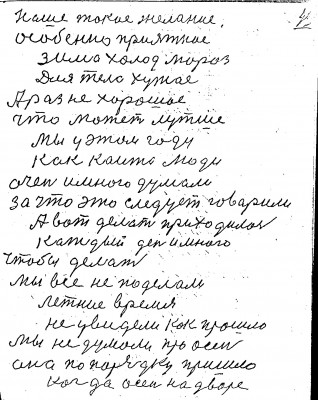 Наше токое желание,
особенно приятное
зима холод мороз
Для тело хужае
А раз не хорошое
что может лутше
мы у этом году
Как каита моди
очен имного думали
за что это следует говарили
А вот делат приходилос
Каждый ден имного
чтобы делат
мы все не поделали
летние время
не увидели как прошло
мы не думали про осен
она по порядку пришло
когда осен на дворе